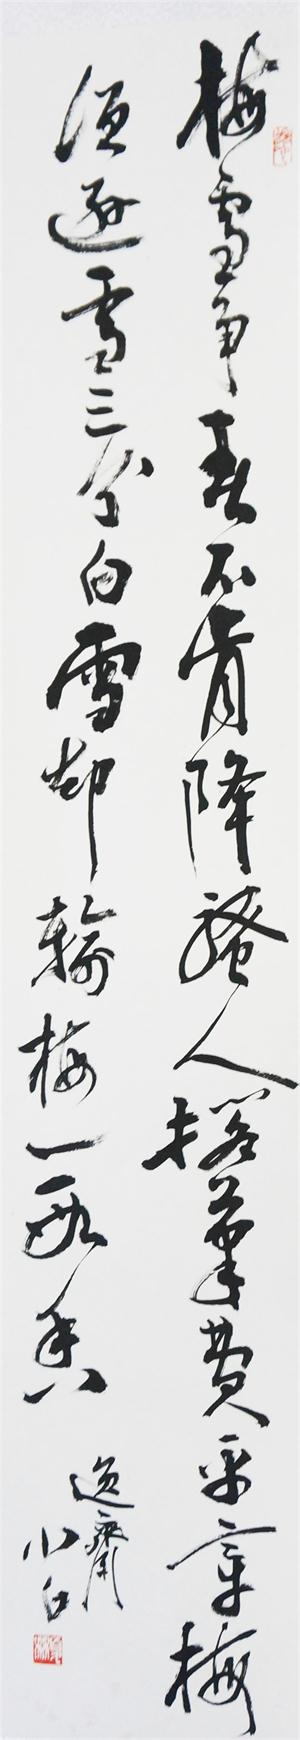 梅雪争春不肯降骚人搁笔费平章梅
须逊雪三分白雪却输梅一段香
逸斋
小白